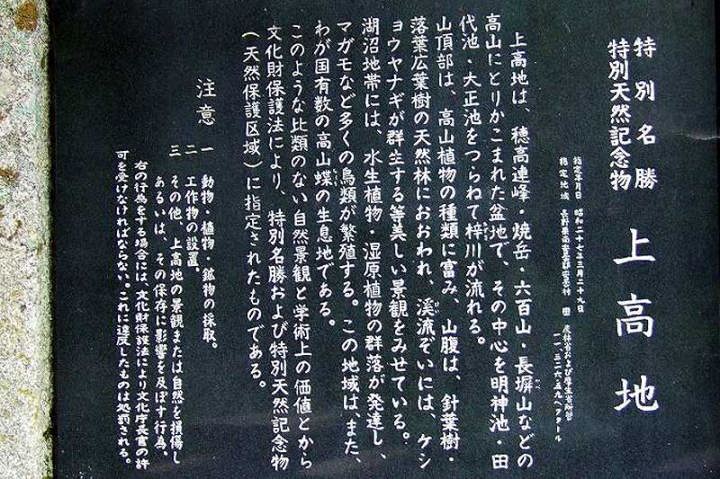 特別名勝
特別天然記念物
上高地
指定年月日 昭和二十七年三月二十九日
指定地域 長野県南安曇郡安曇村
上高地は、穂高連峰・焼岳・六百山・長塀山などの
高山にとりかこまれた盆地で、その中心を明神池・田
代池・大正池をつらねて梓川が流れる。
山頂部は、高山植物の種類に富み、山腹は、針葉樹・
落葉広葉樹の天然林におおわれ、渓流ぞいには、ケシ
ョウヤナギが群生する等美しい景観をみせている。
湖沼地帯には、水生植物・湿原植物の群落が発達し、
マガモなど多くの鳥類が繁殖する。この地域は、また、
わが国有数の高山蝶の生息地である。
このような比類のない自然景観と学術上の価値とから
文化財保護法により、特別名勝および特別天然記念物
(天然保護区域)に指定されたものである。
注意
一 動物・植物・鉱物の採取。
二 工作物の設置。
三 その他、上高地の景観または自然を損傷し
あるいは、その保存に影響を及ぼす行為、
右の行為をする場合には、文化財保護法により文化庁長官の許
可を受けなければならない。これに違反したものは処罰される。